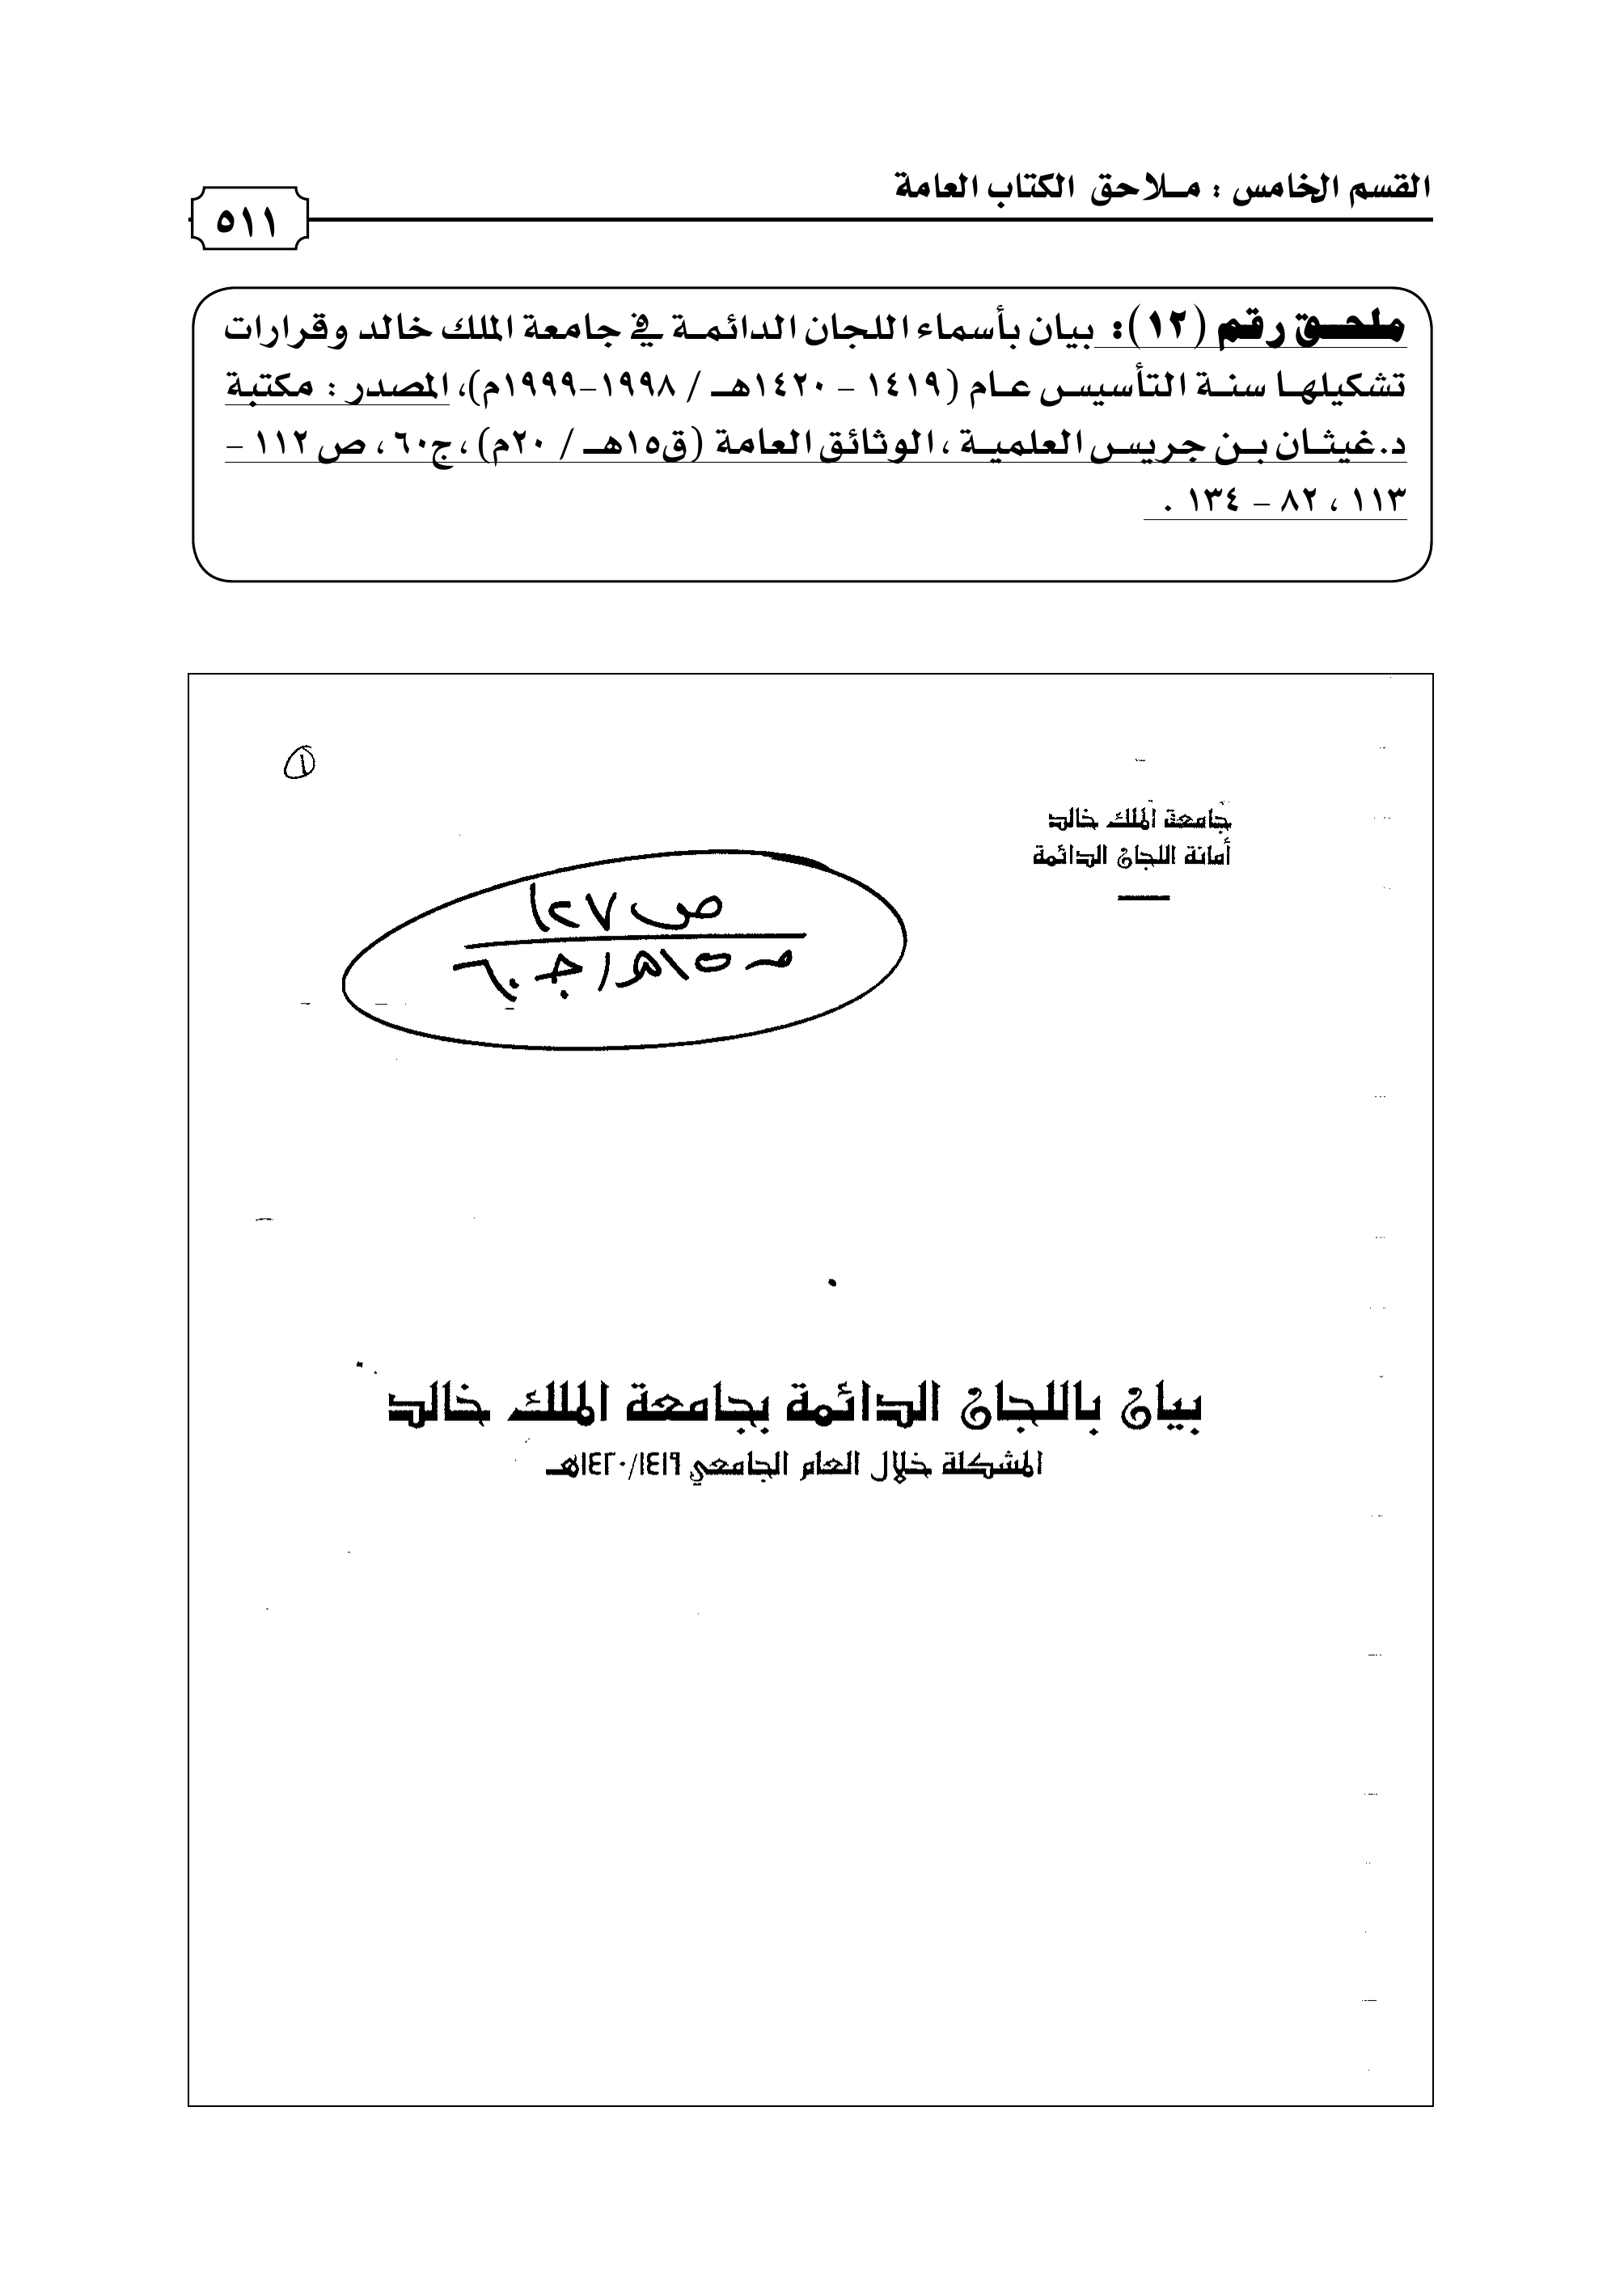 القسم الخامس : مـلاحق الكتاب العامة
٥١١
ملحـق رقم (١٢): بيان بأسماء اللجان الدائمـة في جامعة الملك خالد وقرارات
تشكيلهـا سنـة التأسيـس عـام (١٤١٩ – ١٤٢٠هـ / ١٩٩٨–١٩٩٩م)، المصدر : مكتبة
د.غيثـان بـن جريـس العلميـة ، الوثائق العامة (ق١٥هـ / ٢٠م) ، ج٦٠ ، ص ١١٢ –
١١٣ ، ٨٢ – ١٣٤ .
١
جامعة الملك خالد
أمانة اللجان الدائمة
ص ١٢٧
١٥هـ / ج ٦٠
بيان باللجان الدائمة بجامعة الملك خالد
المشكلة خلال العام الجامعي ١٤١٩/١٤٢٠هـ